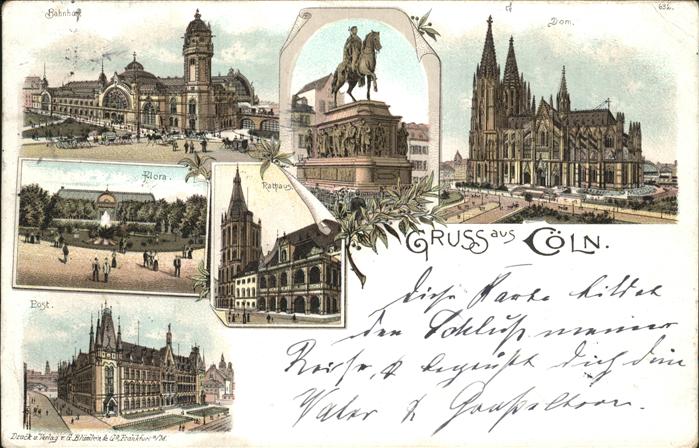 Bahnhof
Dom.
632.
Flora.
Rathaus.
GRUSS aus CÖLN.
Diese Karte bildet
den Schluß meiner
Reise, & begrüßt dich dein
Vater &
Post.
Druck u. Verlag v. G. Blümlein & Co. Frankfurt a/M.